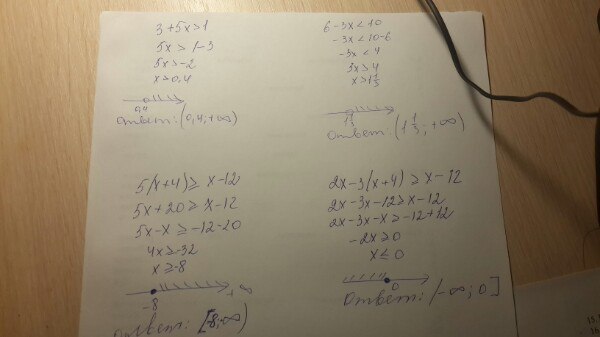 3+5x>1
5x>1-3
5x>-2
x>0,4
0,4
Ответ: (0,4; +∞)
6-3x<10
-3x<10-6
-3x<4
3x>4
x>1 1/3
1 1/3
Ответ: (1 1/3; +∞)
5(x+4) ≥ x-12
5x+20 ≥ x-12
5x-x ≥ -12-20
4x ≥ -32
x ≥ -8
-8 +∞
Ответ: [-8; ∞)
2x-3(x+4) ≥ x-12
2x-3x-12 ≥ x-12
2x-3x-x ≥ -12+12
-2x ≥ 0
x ≤ 0
0
Ответ: (-∞; 0]